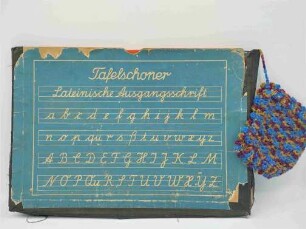 Tafelschoner
Lateinische Ausgangsschrift
a b c d e f g h i j k l m
n o p q u r s ß t u v w x y z
A B C D E F G H I J K L M
N O P Qu R S T U V W X Y Z